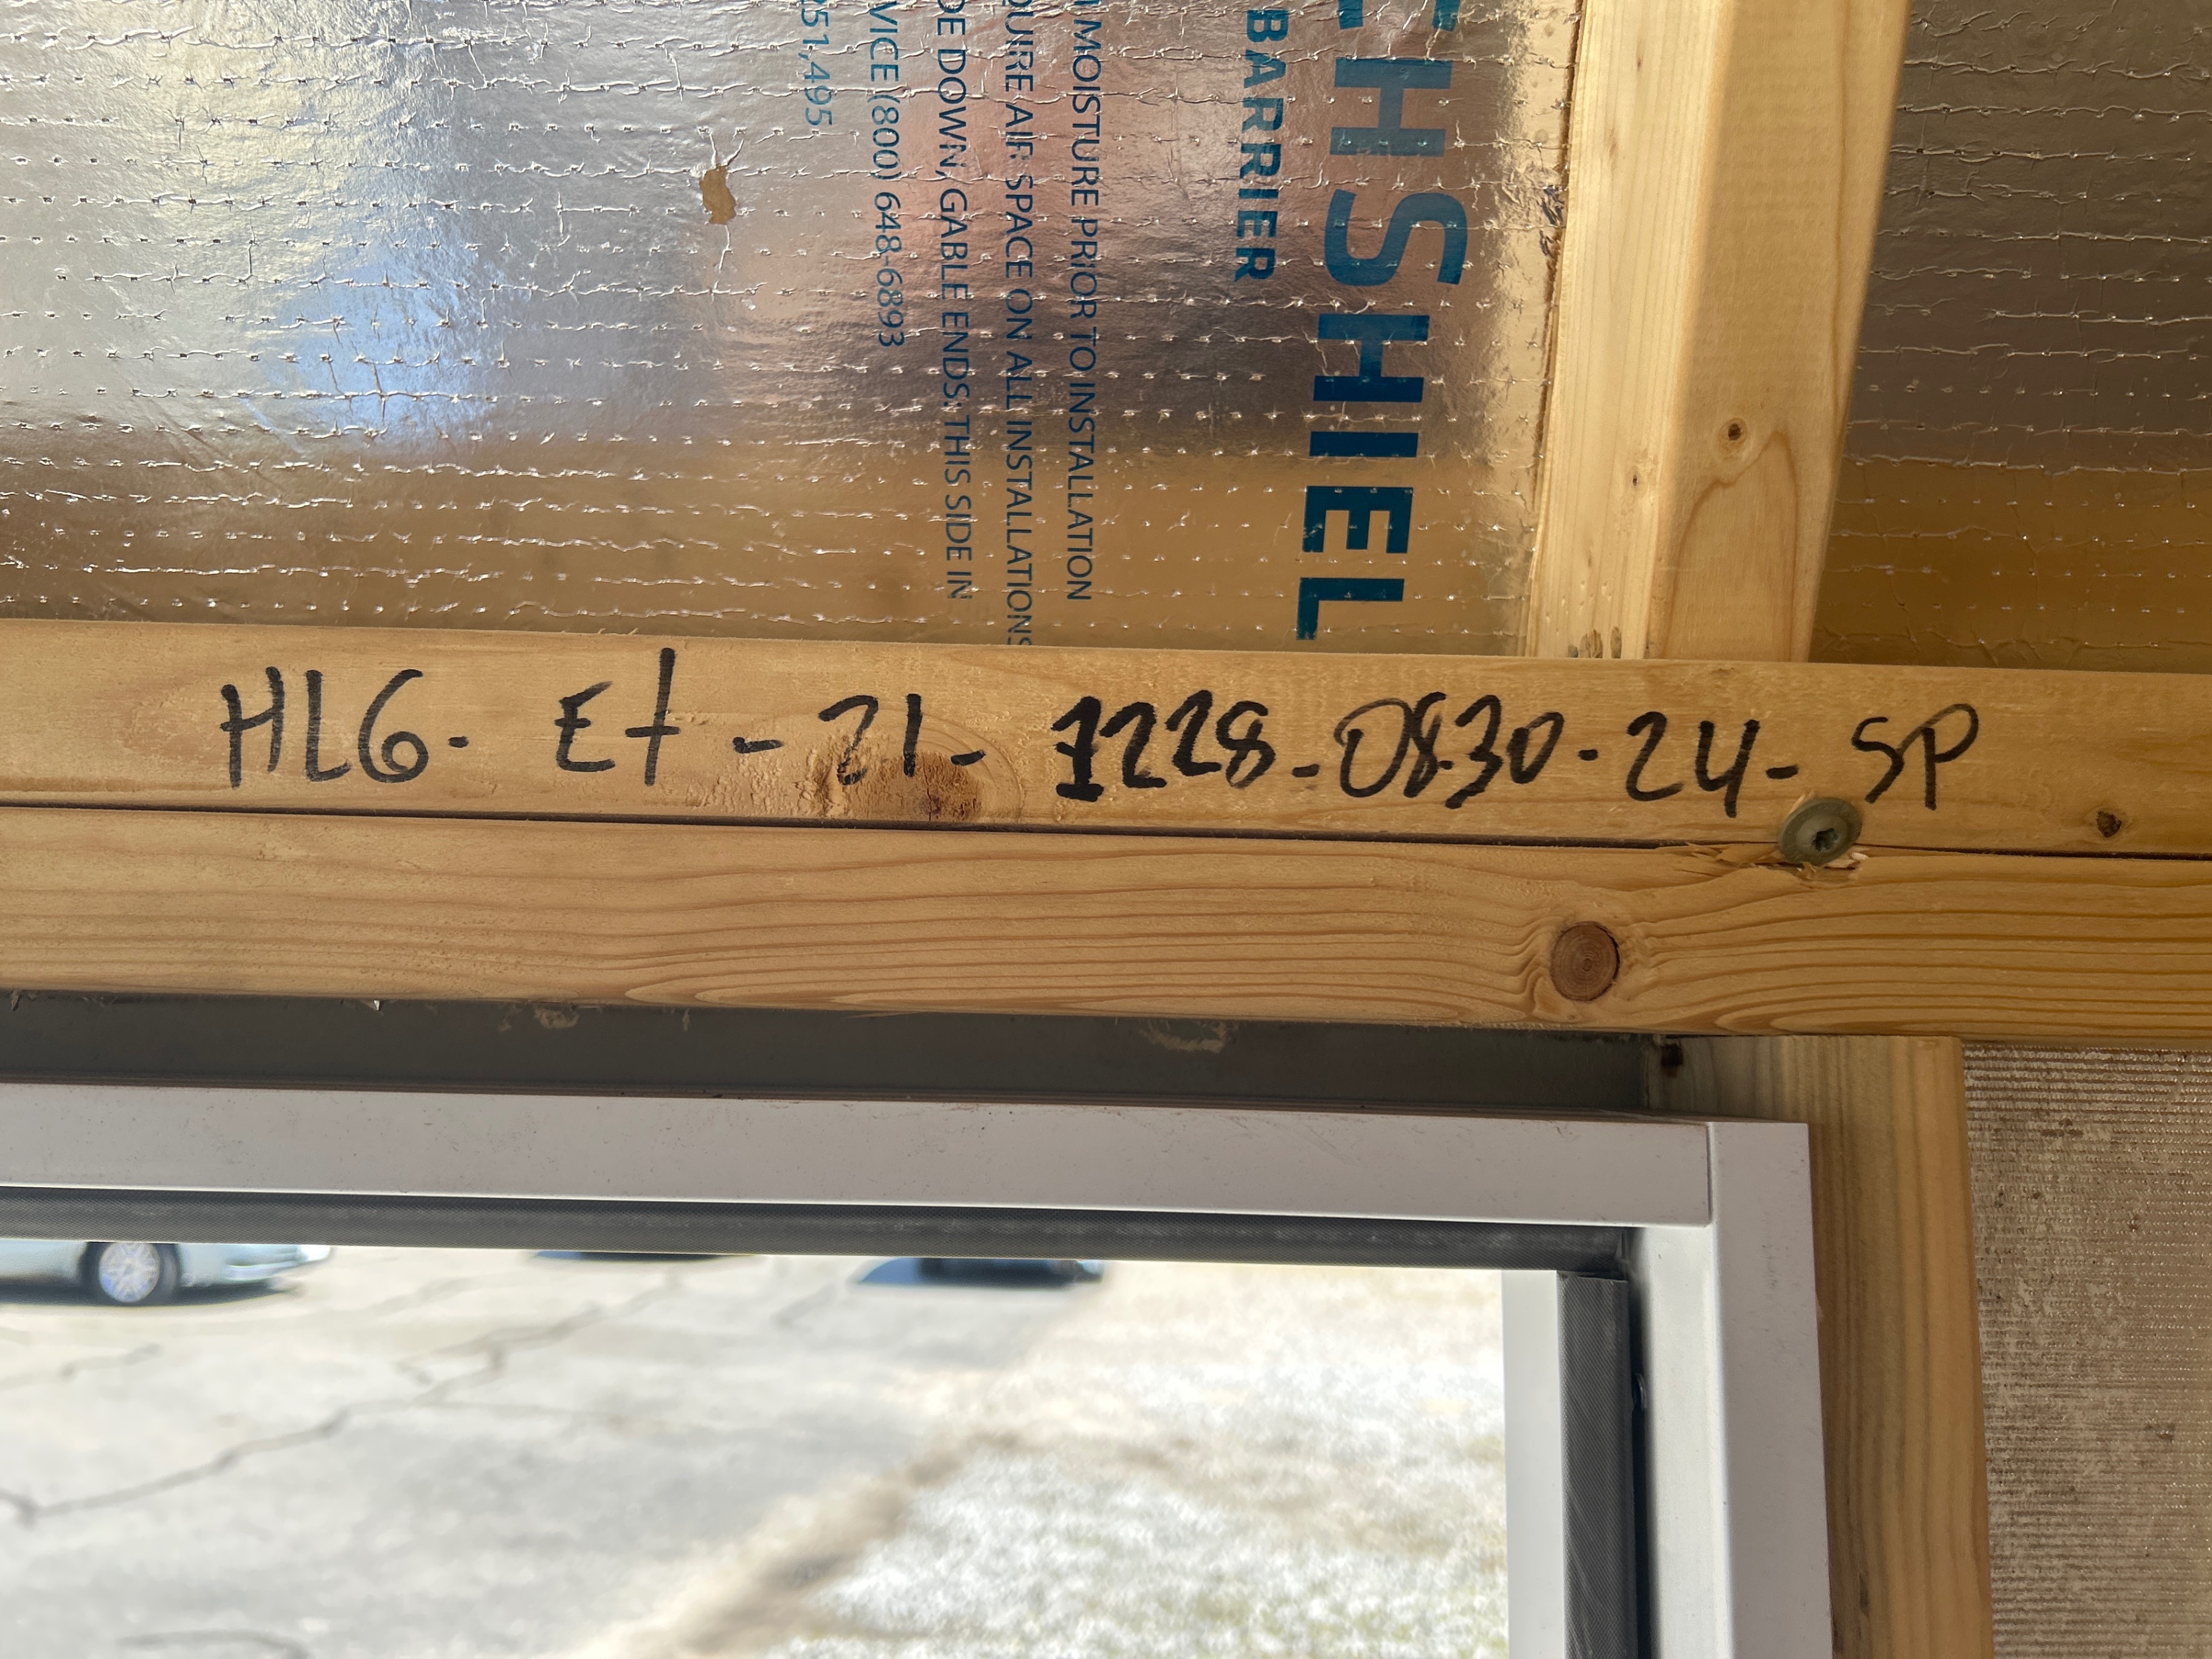 HLG - Et - 21 - 1228 - 0830 - 24 - SP
HSHIEL
BARRIER
MOISTURE PRIOR TO INSTALLATION
QUIRE AIR SPACE ON ALL INSTALLATIONS
DE DOWN, GABLE ENDS: THIS SIDE IN
VICE (800) 648-6893
251,495